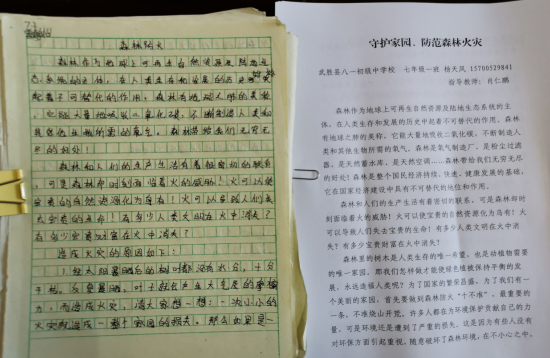 森林防火
森林作为地球上可再生自然资源及陆地生
态系统的主体，在人类生存和发展的历史中起
着不可替代的作用。森林有地球之肺的美称，
它能大量地吸收二氧化碳，不断制造人类和
其他生物所需的氧气。森林带给我们无穷无
尽的好处！
森林和人们的生产生活有着密切的联系，
可是森林却时刻面临着火的威胁！火可以使宝
贵的自然资源化为乌有！火可以导致人们失
去宝贵的生命！有多少人类文明在火中消失？
有多少宝贵财富在火中消失？
造成火灾的原因如下：
守护家园、防范森林火灾
武胜县八一初级中学校 七年级一班 杨天凤 15700529841
指导教师：肖仁鹏
森林作为地球上可再生自然资源及陆地生态系统的主
体，在人类生存和发展的历史中起着不可替代的作用。森林
有地球之肺的美称，它能大量地吸收二氧化碳，不断制造人类
和其他生物所需的氧气。森林是氧气制造厂，是粉尘过滤
器，是天然蓄水库，是天然空调……森林带给我们无穷无尽
的好处！森林是整个国民经济持续、快速、健康发展的基础，
它在国家经济建设中具有不可替代的地位和作用。
森林和人们的生产生活有着密切的联系，可是森林却时
刻面临着大的威胁！火可以使宝贵的自然资源化为乌有！火
可以导致人们失去宝贵的生命！有多少人类文明在火中消
失？有多少宝贵财富在火中消失？
森林里的树木是人类生存的唯一希望，也是动植物需要
的唯一家园。那我们怎样做才能使绿色植被保持平衡的发
展，永远造福人类呢？为了国家的繁荣昌盛，为了我们有一
个美丽的家园。首先要做到森林防火“十不准”。最重要的
一条，不准烧山开荒，许多人都在为环境保护贡献自己的力
量，可是环境还是遭到了严重的损失，这是因为有些人没有
对环保方面引起重视，随意破坏了森林环境，在不小心之中，